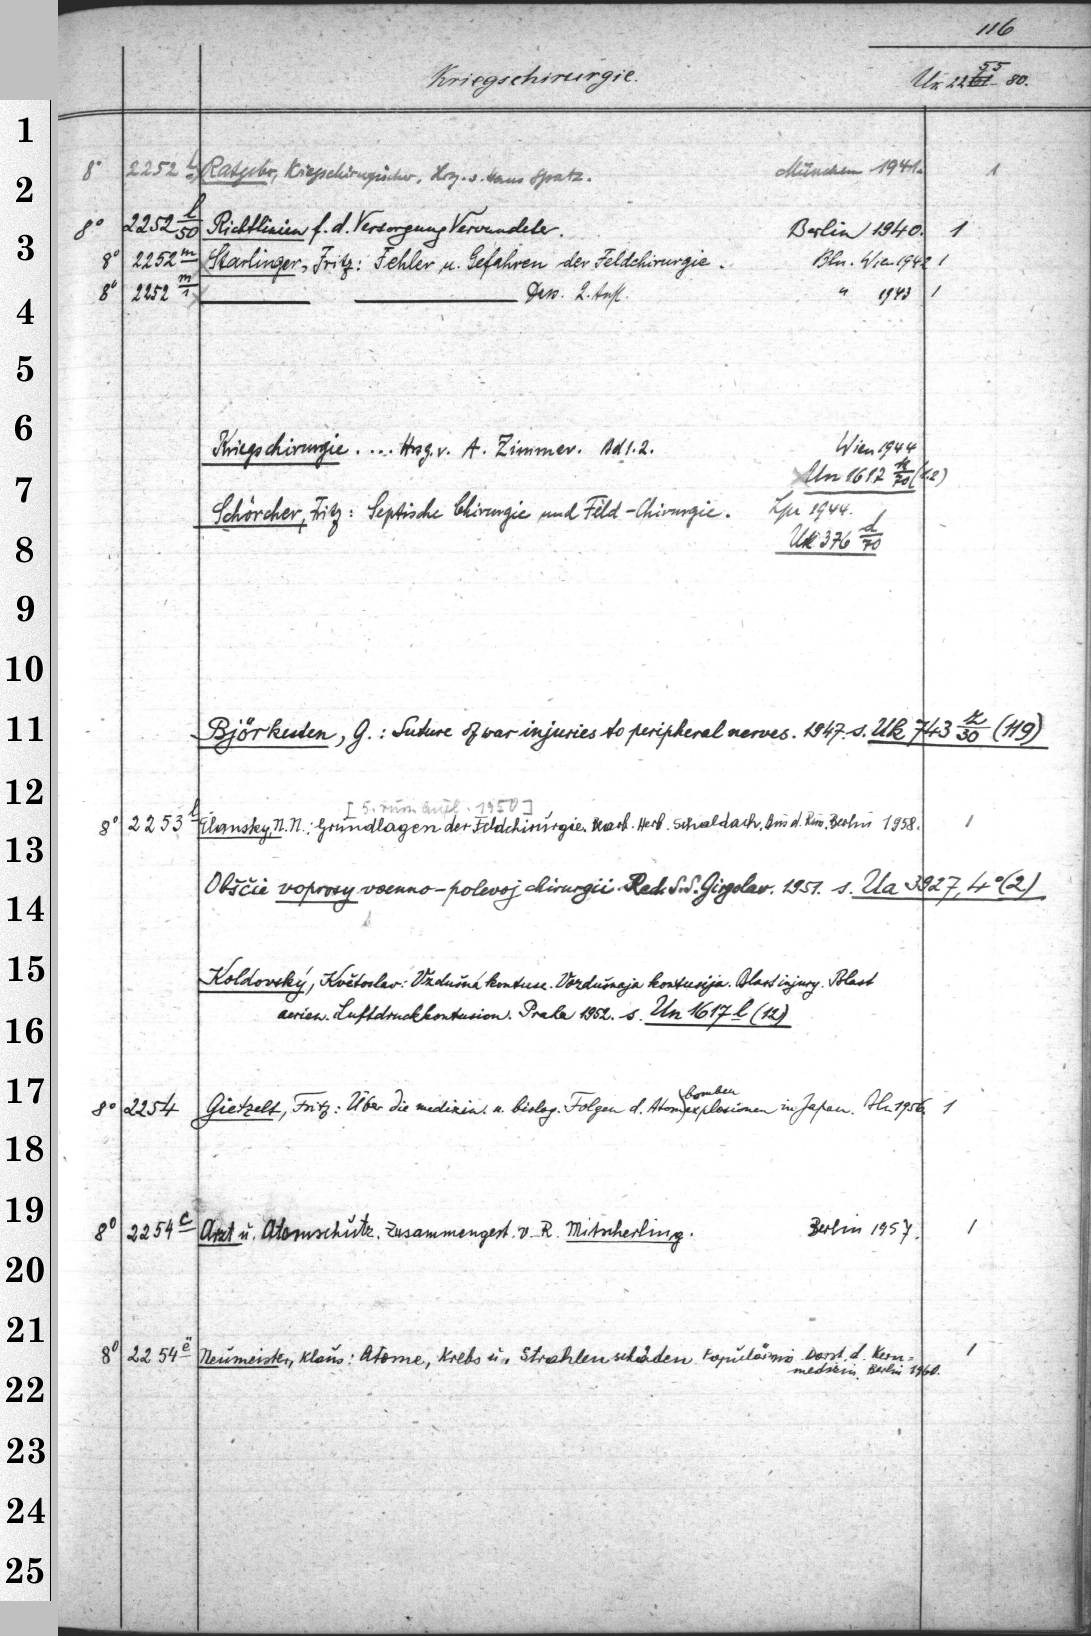 116
Kriegschirurgie.
Un 2261 55 80.
1
8° 2252 l Ratgeber, Kriegschirurgischer, Hrsg. v. Hans Spatz. München 1941. 1
2
8° 2252 l/50 Richtlinien f. d. Versorgung Verwundeter. Berlin 1940. 1
3
8° 2252 m Starlinger, Fritz: Fehler u. Gefahren der Feldchirurgie. Bln. Wien 1942 1
8° 2252 m/1 Dess. 2. Aufl. " 1943 1
4
5
6
Kriegschirurgie. ... Hrsg. v. A. Zimmer. Bd 1.2. Wien 1944
7
Un 1612 k/70 (1.2)
Schörcher, Fritz: Septische Chirurgie und Feld-Chirurgie. Lpz 1944.
8
Uk 376 d/70
9
10
11
Björkesten, G.: Suture of war injuries to peripheral nerves. 1947. s. Uk 743 k/30 (119)
12
[5. russ. Aufl. 1950]
8° 2253 l Elansky, N.N.: Grundlagen der Feldchirurgie. Bearb. Herb. Schaldach. Aus d. Russ. Berlin 1958. 1
13
Obščie voprosy voenno-polevoj chirurgii. Red. S.S. Girgolav. 1951. s. Ua 3927, 4° (2)
14
15
Koldovský, Květoslav: Vzdušná kontuse. Vozdušnaja kontuzija. Blast injury. Blast
aerien. Luftdruckkontusion. Praha 1952. s. Un 1617 l (12)
16
17
bomben
8° 2254 Gietzelt, Fritz: Über die medizin. u. biolog. Folgen d. Atomexplosionen in Japan. Bln. 1956. 1
18
19
8° 2254 c Arzt u. Atomschutz. Zusammengest. v. R. Mitscherling. Berlin 1957. 1
20
21
8° 2254 e Neumeister, Klaus: Atome, Krebs u. Strahlenschäden. Populärwiss. Darst. d. Kern- 1
medizin. Berlin 1960.
22
23
24
25